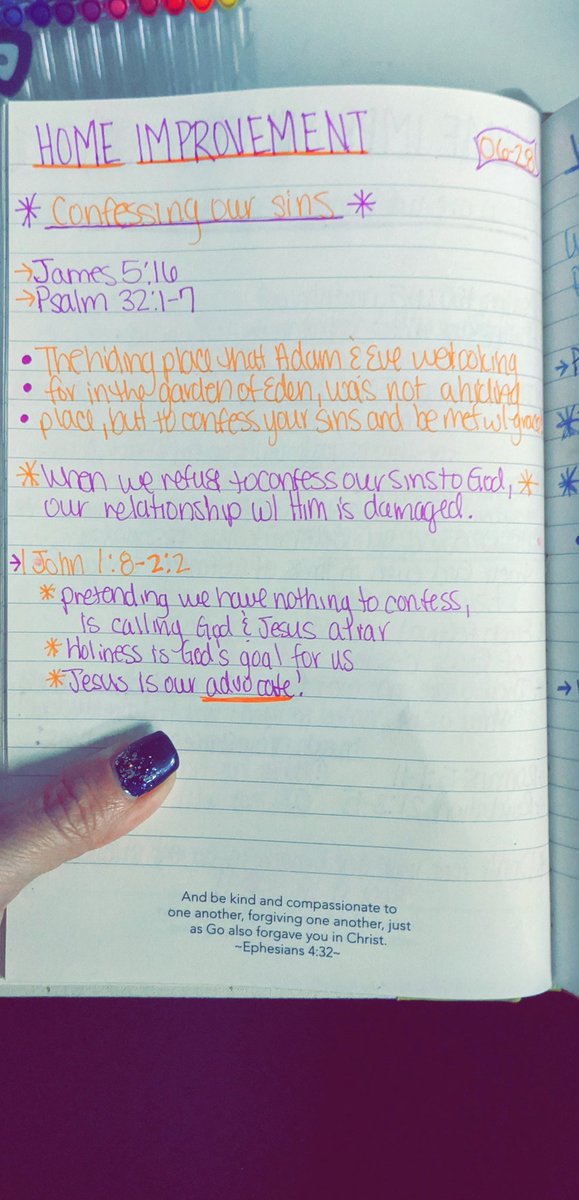 HOME IMPROVEMENT
06-28
* Confessing our sins *
→ James 5:16
→ Psalm 32:1-7
• The hiding place that Adam & Eve were looking
• for in the garden of Eden, was not a hiding
• place, but to confess your sins and be met w/ grace
* When we refuse to confess our sins to God, *
our relationship w/ Him is damaged.
→ 1 John 1:8-2:2
* pretending we have nothing to confess,
is calling God & Jesus a liar
* Holiness is God's goal for us
* Jesus is our advocate!
And be kind and compassionate to
one another, forgiving one another, just
as Go also forgave you in Christ.
~Ephesians 4:32~